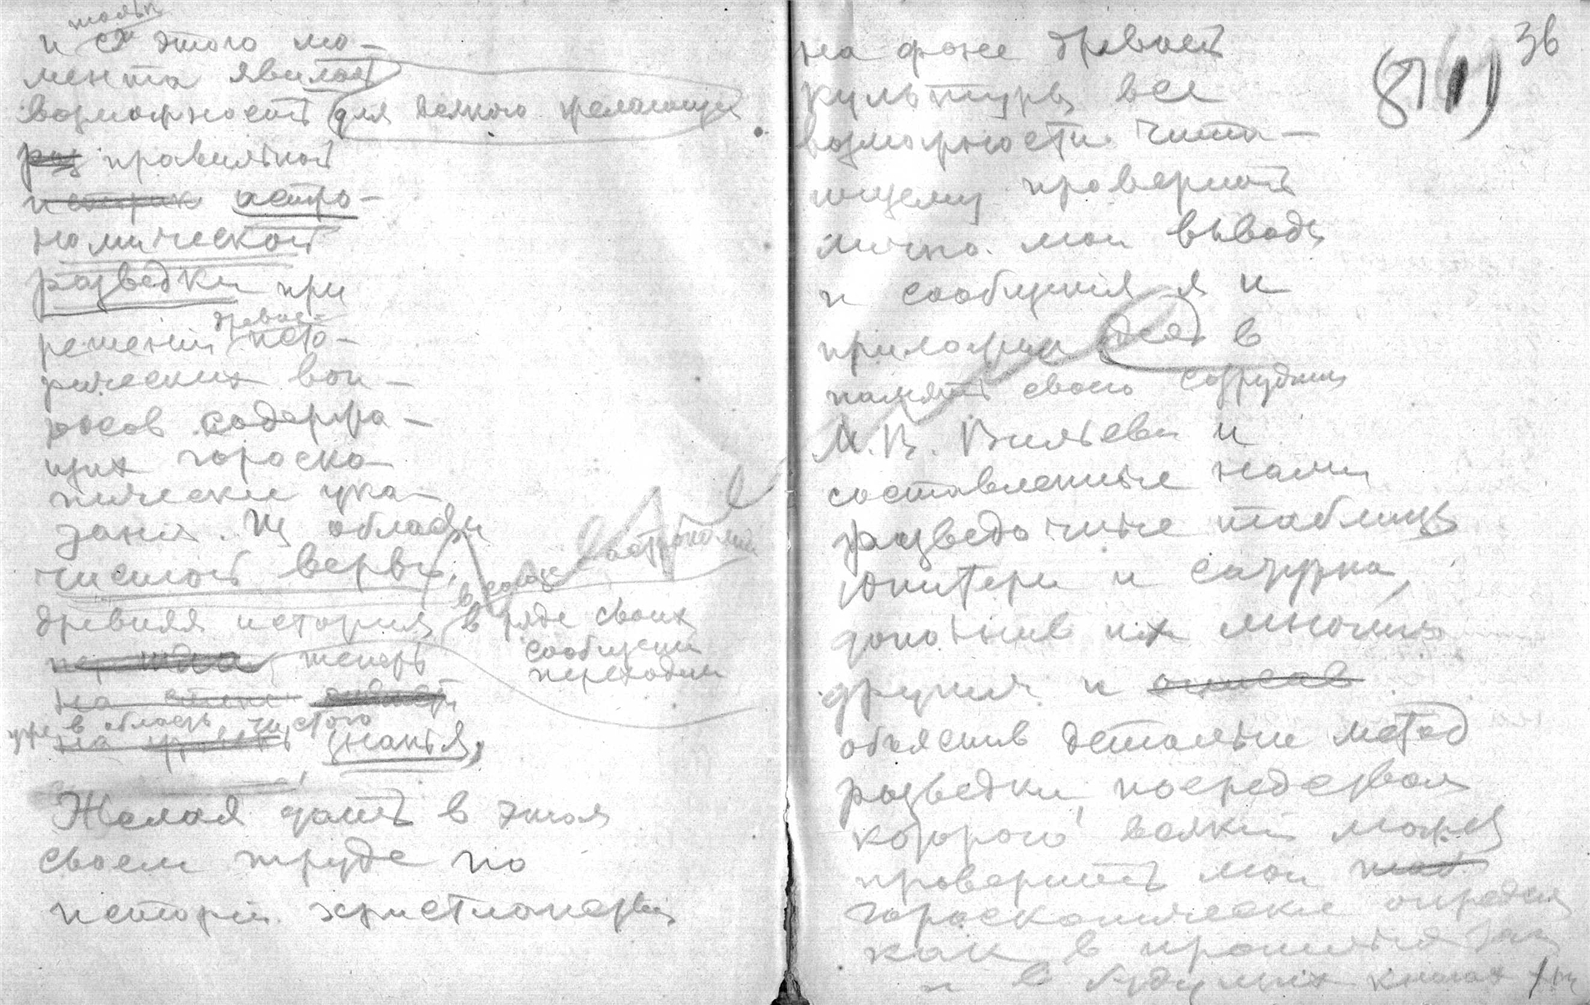 только
и с этого мо-
мента явилась
возможность для всякого желающего
раз правильной
астро-
номической
разведки при
решении древне-
исто-
рических воп-
росов содержа-
щих гороско-
пические ука-
зания. Из области
чистой веры,
древняя история в ряде своих
сообщений
переходит
теперь
в союзе с астрономией
уже в область чистого
знанья,
Желая дать в этом
своем труде по
истории христианства
36
87
на фоне древней
культуры все
возможности чита-
ющему проверить
лично мои выводы
и сообщения я и
приложил в
память своего сотрудника
М. В. Вильева и
составленные нами
разведочные таблицы
Юпитера и Сатурна,
дополнив их многими
другими и описав
объяснив детально метод
разведки, посредством
которого всякий может
проверить мои
гороскопические определ
как в прошлых так
и в будущих книгах